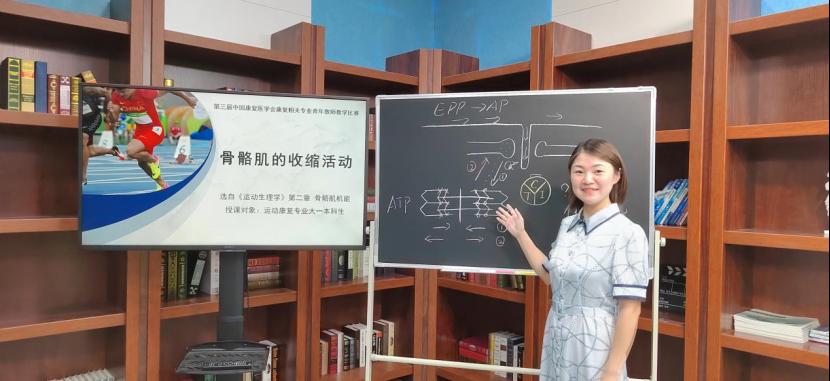 第三届中国康复医学会康复相关专业青年教师教学比赛
骨骼肌的收缩活动
选自《运动生理学》第二章 骨骼肌机能
授课对象：运动康复专业大一本科生
CHINA
EPP → AP
②
①
ATP
C
T
I
?
①
②